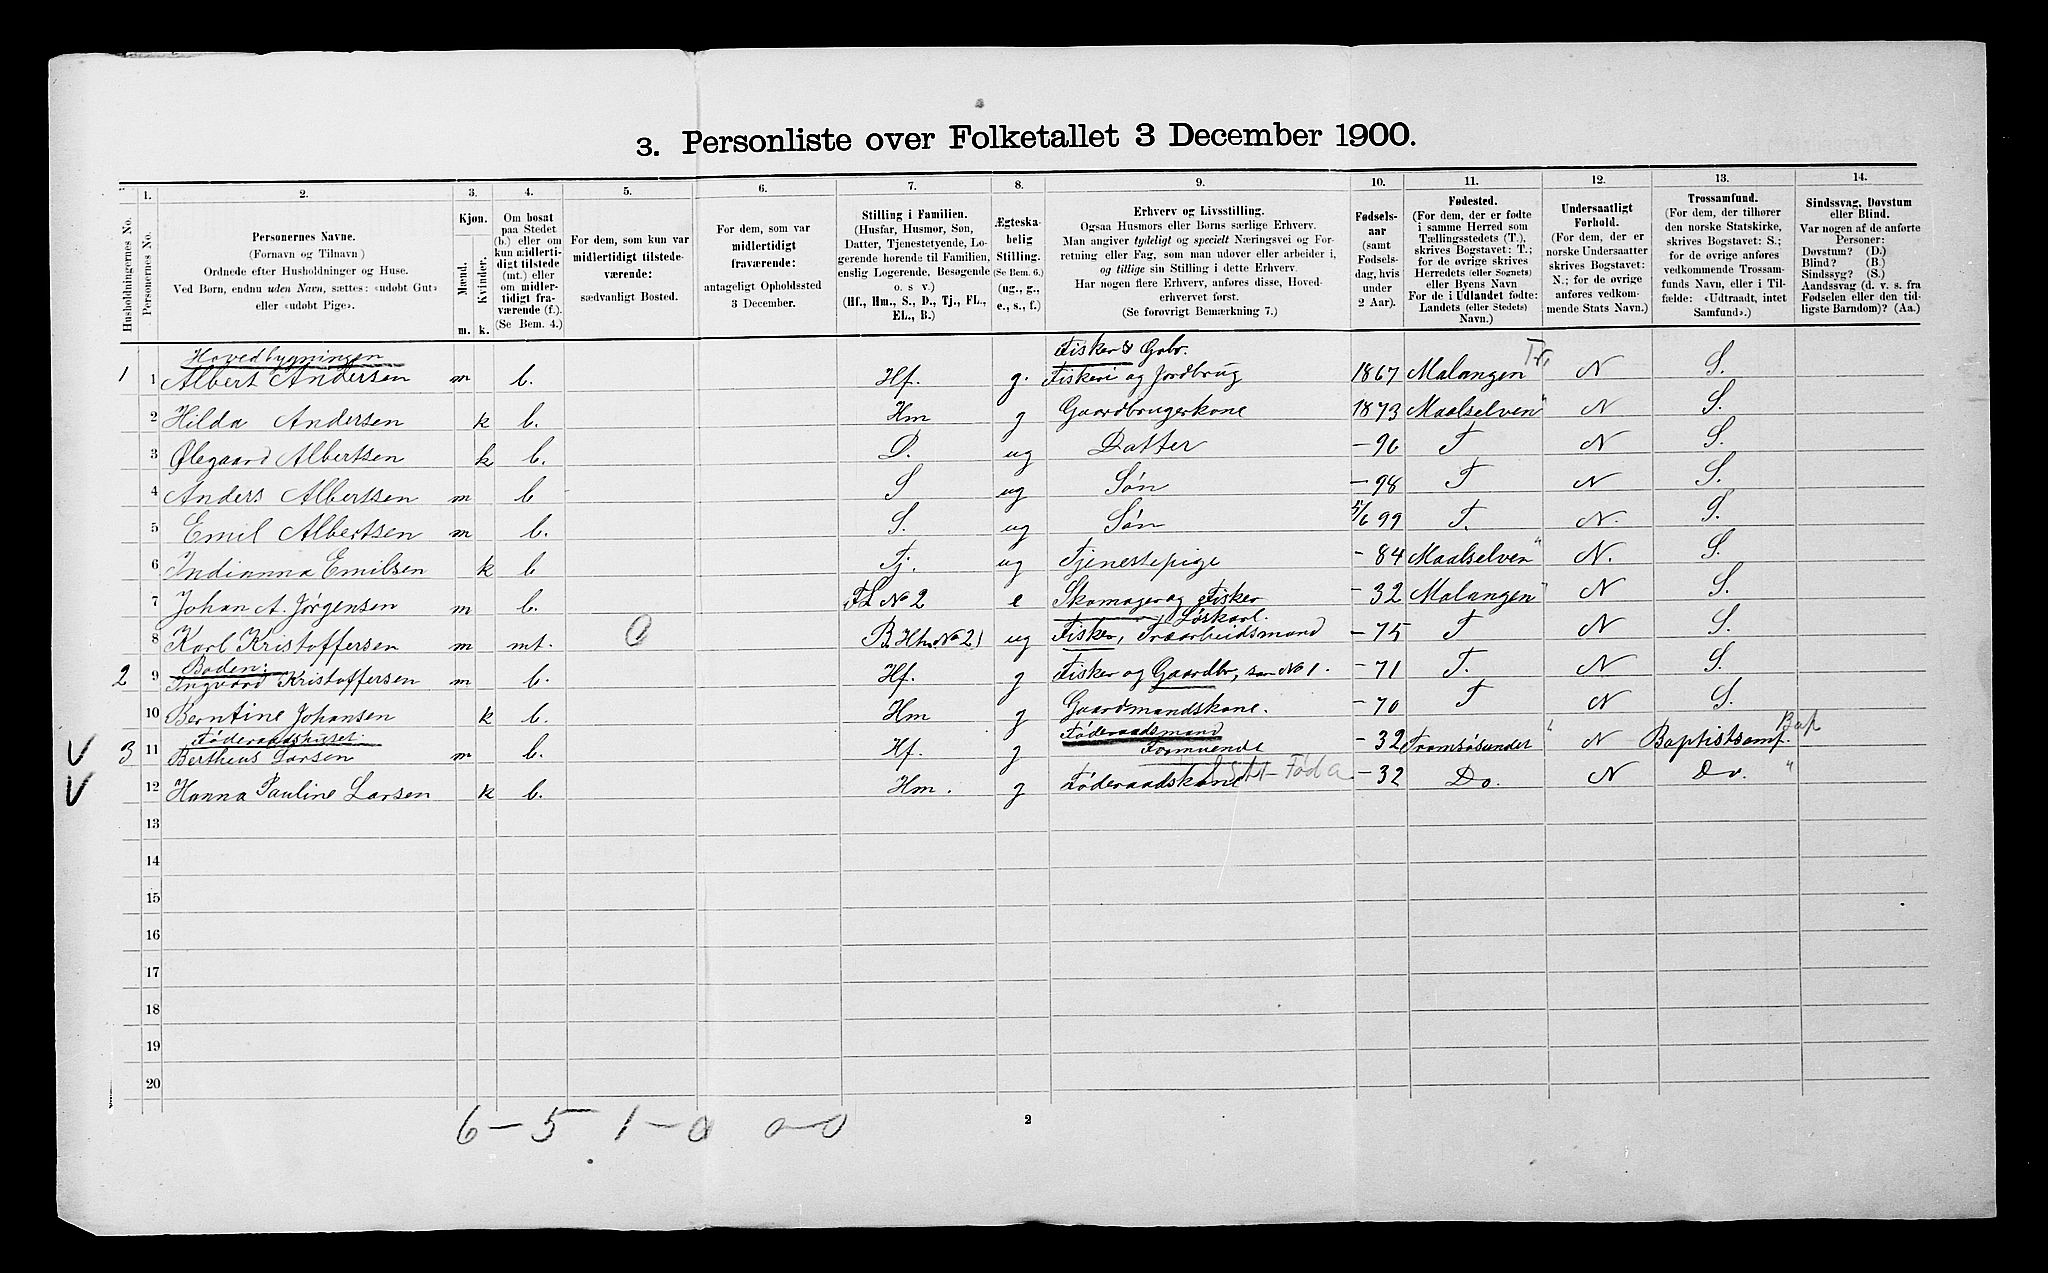 3. Personliste over Folketallet 3 December 1900.
Husholdningernes No.
1.
Personernes No.
2.
Personernes Navne.
(Fornavn og Tilnavn)
Ordnede efter Husholdninger og Huse.
Ved Børn, endnu uden Navn, sættes: «udøbt Gut»
eller «udøbt Pige».
3.
Kjøn.
Mænd.
Kvinder.
m. k.
4.
Om bosat
paa Stedet
(b.) eller om
kun midlerti-
digt tilstede
(mt.) eller
om midler-
tidigt fra-
værende (f.).
(Se Bem. 4.)
5.
For dem, som kun var
midlertidigt tilstede-
værende:
sædvanligt Bosted.
6.
For dem, som var
midlertidigt
fraværende:
antageligt Opholdssted
3 December.
7.
Stilling i Familien.
(Husfar, Husmor, Søn,
Datter, Tjenestetyende, Lo-
gerende hørende til Familien,
enslig Logerende, Besøgende
o. s v.)
(Hf., Hm., S., D., Tj., FL.,
EL., B.)
8.
Ægteska-
belig
Stilling.
(Se Bem. 6.)
(ug., g.,
e., s., f.)
9.
Erhverv og Livsstilling.
Ogsaa Husmors eller Børns særlige Erhverv.
Man angiver tydeligt og specielt Næringsvei og For-
retning eller Fag, som man udover eller arbeider i,
og tillige sin Stilling i dette Erhverv.
Har nogen flere Erhverv, anføres disse, Hoved-
erhvervet først.
(Se forøvrigt Bemærkning 7.)
10.
Fødsels-
aar
(samt
Fødsels-
dag, hvis
under
2 Aar).
11.
Fødested.
(For dem, der er fødte
i samme Herred som
Tællingsstedets (T.),
skrives Bogstavet: T.;
for de øvrige skrives
Herredets (eller Sognets)
eller Byens Navn
For de i Udlandet fødte:
Landets (eller Stedets)
Navn.)
12.
Undersaatligt
Forhold.
(For dem, der er
norske Undersaatter
skrives Bogstavet:
N.; for de øvrige
anføres vedkom-
mende Stats Navn.)
13.
Trossamfund.
(For dem, der tilhører
den norske Statskirke,
skrives Bogstavet: S.;
for de øvrige anføres
vedkommende Trossam-
funds Navn, eller i Til-
fælde: «Udtraadt, intet
Samfund».)
14.
Sindssvag, Døvstum
eller Blind.
Var nogen af de anførte
Personer:
Døvstum? (D.)
Blind? (B.)
Sindssyg? (S.)
Aandssvag (d. v. s. fra
Fødselen eller den tid-
ligste Barndom)? (Aa.)
Hovedbygningen Fisker & Gbr. Tr.
1 1 Albert Andersen m b. Hf. g. Fiskeri og Jordbrug 1867 Malangen N S.
2 Hilda Andersen k b. Hm g Gaardbrugerkone 1873 Maalselven " N S.
3 Ølegaard Albertsen k b. D. ug Datter -96 T N S.
4 Anders Albertsen m b S ug Søn -98 T N S.
5 Emil Albertsen m b. S. ug Søn /6 99 T. N. S.
6 Indianna Emilsen k b Tj. ug Tjenestepige -84 Maalselven " N. S.
7 Johan A. Jørgensen m b. FL No 2 e Skomager og Fisker -32 Malangen " N S.
Løskarl.
8 Karl Kristoffersen m mt. 0 B. Hm. No 2) ug Fisker, Træarbeidsmand -75 T N S.
Boden:
2 9 Ingvard Kristoffersen m b. Hf. g Fisker og Gaardbr, som No 1. -71 T. N S.
10 Berntine Johansen k b. Hm g Gaardmandskone. -70 T N S.
Føderaadshuset. Føderaadsmand Bap
V 3 11 Bertheus Larsen m b. Hf. g Formuende -32 Tromsøsundet " N Baptistsamf.
V 12 Hanna Pauline Larsen k b. Hm. g Føderaadskone Føda -32 Do. N Do. "
13
14
15
16
17
18
19
20
6-5 1-0 0-0
2